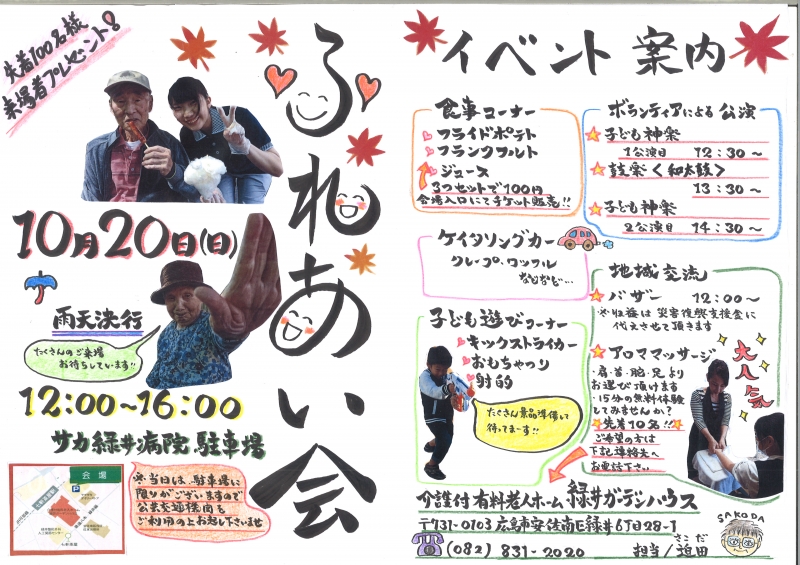 先着100名様
来場者プレゼント!
ふれあい会
10月20日(日)
雨天決行
たくさんのご来場
お待ちしています!!
12:00~16:00
サカ緑井病院 駐車場
会場
※当日は、駐車場に
限りがございますので
公共交通機関を
ご利用の上お越し下さいませ
イベント 案内
食事コーナー
フライドポテト
フランクフルト
ジュース
3つセットで100円
会場入口にてチケット販売!!
ボランティアによる公演
子ども神楽
1公演目 12:30~
鼓楽<和太鼓>
13:30~
子ども神楽
2公演目 14:30~
ケイタリングカー
クレープ、ワッフル
などなど…
地域交流
バザー 12:00~
※収益は災害復興支援金に
代えさせて頂きます
アロママッサージ
・肩・首・腕・足より
お選び頂けます
・15分の無料体験
してみませんか?
先着10名!!
ご希望の方は
下記連絡先へ
お電話下さい
大人気
子ども遊びコーナー
・キックストライカー
・おもちゃつり
・射的
たくさん景品準備して
待ってまーす!!
介護付有料老人ホーム 緑井ガーデンハウス
〒731-0103 広島市安佐南区緑井6丁目28-1
(082) 831-2020
担当/迫田
さこだ
SAKODA